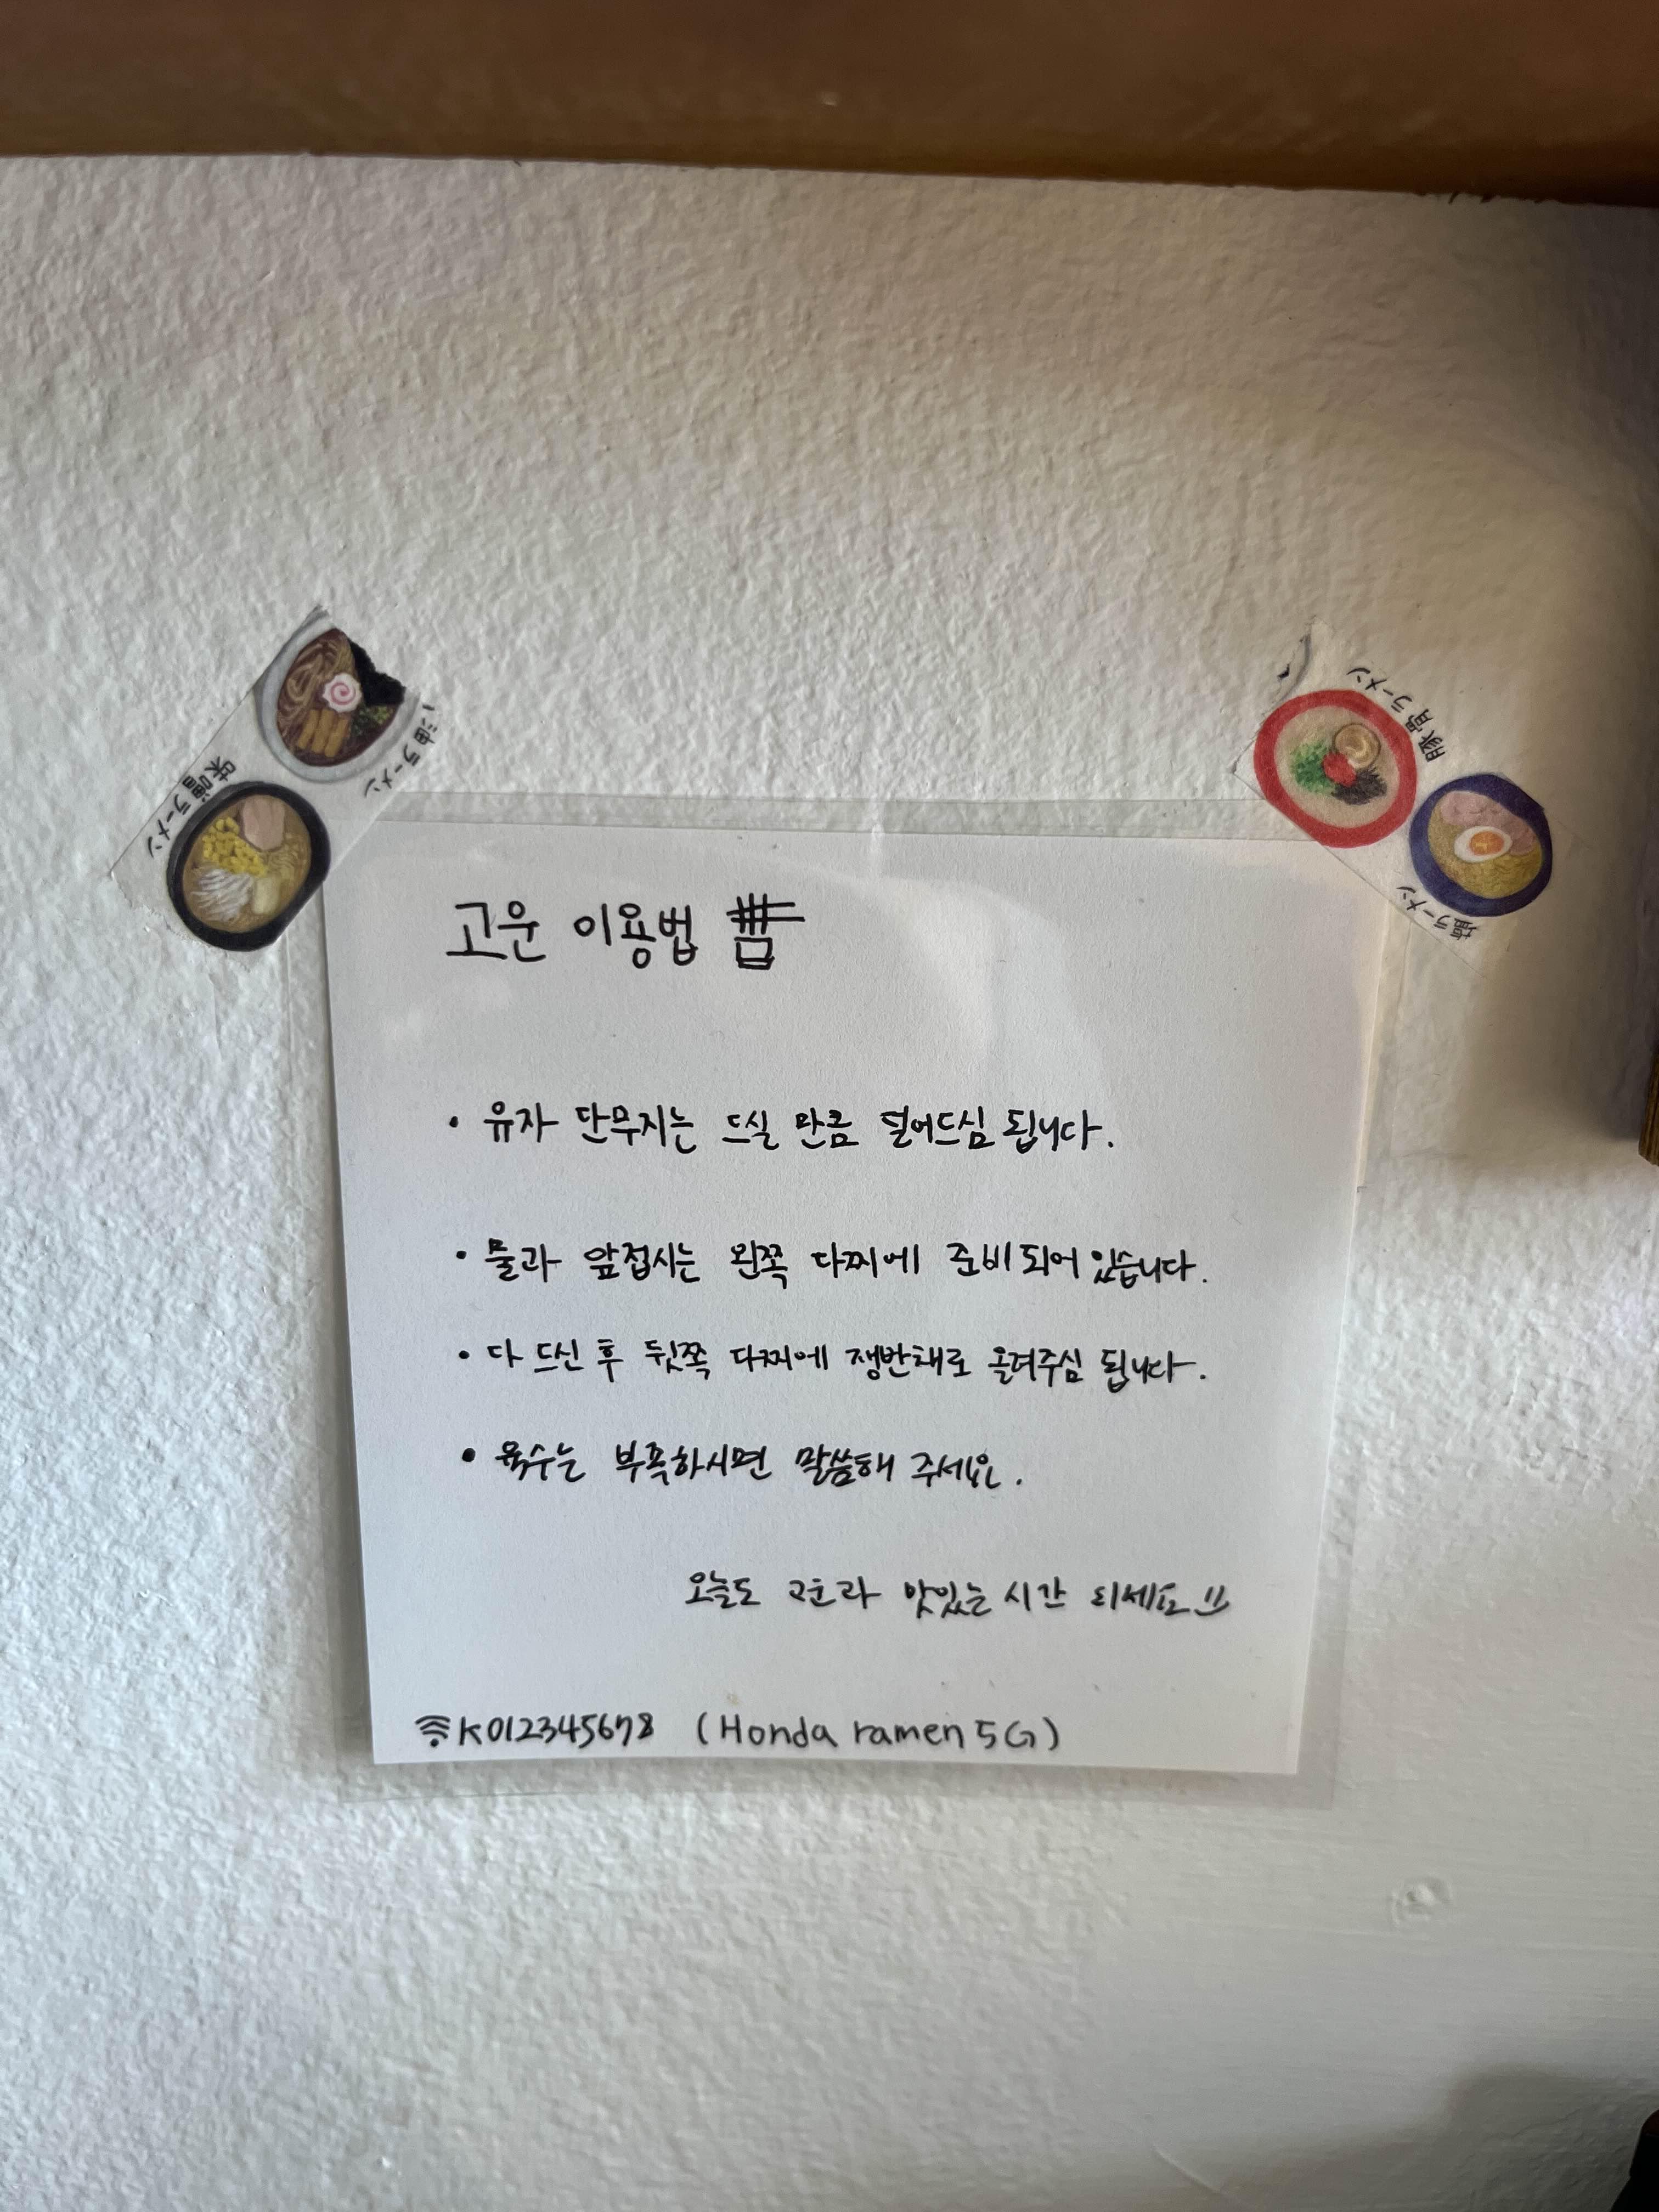 油ラーメン
味噌ラーメン
豚骨ラーメン
塩ラーメン
고운 이용법
• 유자 단무지는 드실 만큼 덜어드심 됩니다.
• 물과 앞접시는 왼쪽 다찌에 준비되어 있습니다.
• 다 드신 후 뒷쪽 다찌에 쟁반채로 올려주심 됩니다.
• 육수는 부족하시면 말씀해 주세요.
오늘도 고운과 맛있는 시간 되세요
K012345678 (Honda ramen 5G)